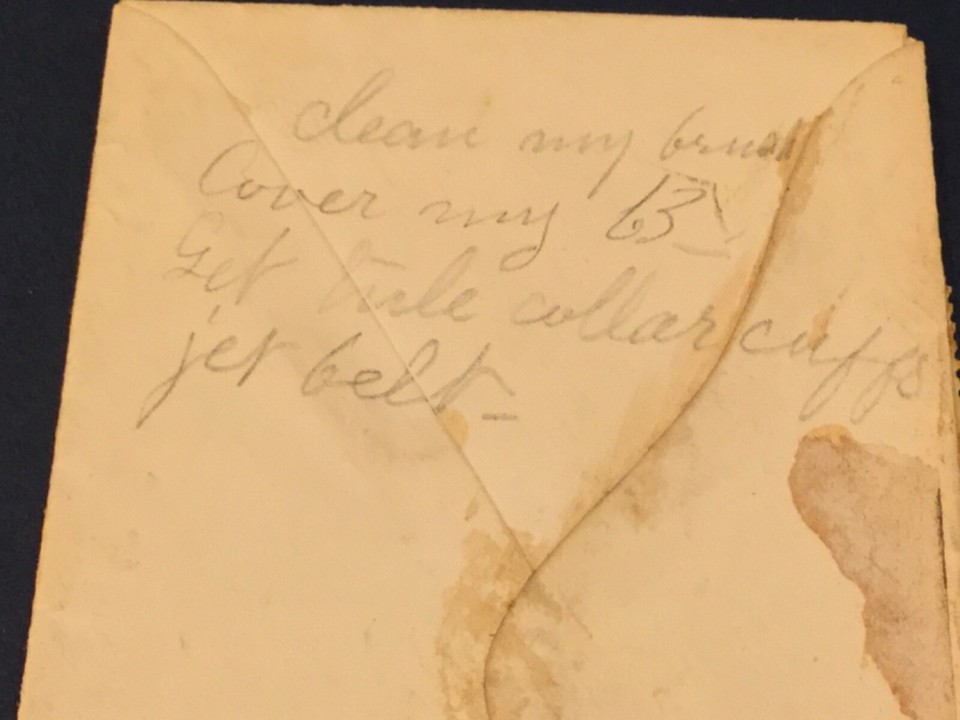 clean my brush
Cover my B
Get tule collar cuffs
jet belt-